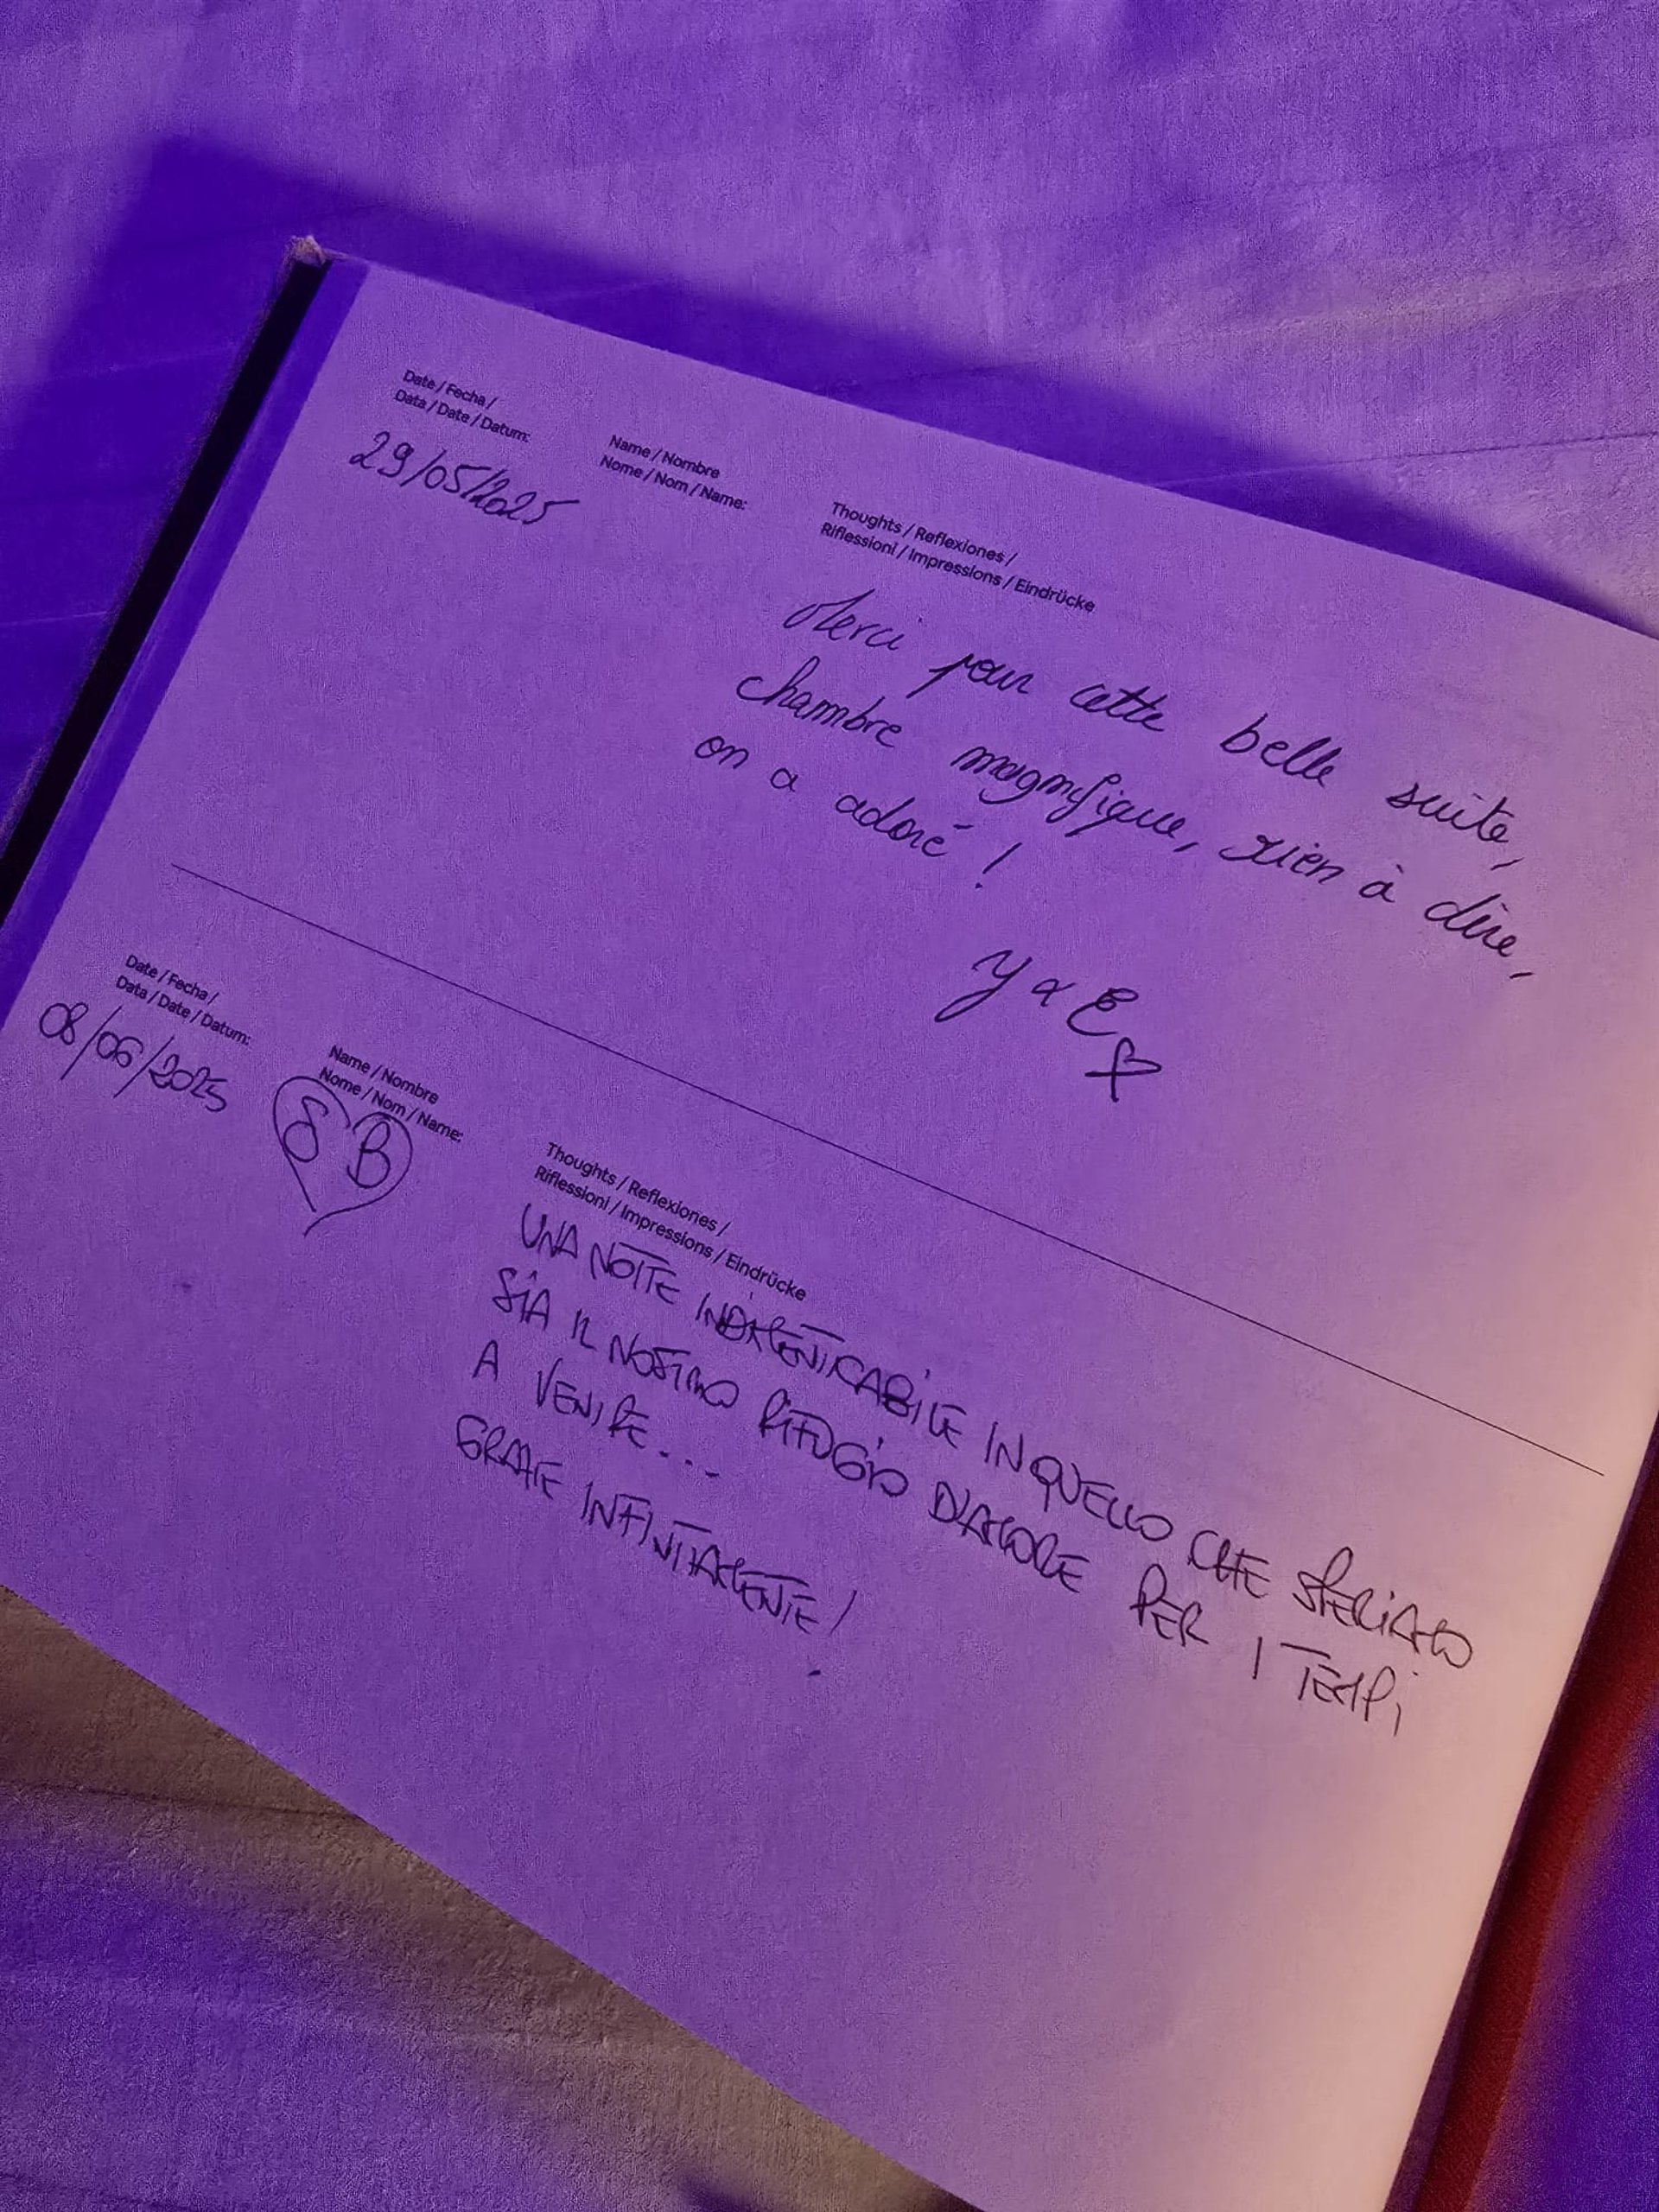 Date / Fecha /
Data / Date / Datum:
29/05/2025
Name / Nombre
Nome / Nom / Name:
Thoughts / Reflexiones /
Riflessioni / Impressions / Eindrücke
Merci pour cette belle suite,
chambre magnifique, rien à dire,
on a adoré !
Y & E
Date / Fecha /
Data / Date / Datum:
08/06/2025
Name / Nombre
Nome / Nom / Name:
S B
Thoughts / Reflexiones /
Riflessioni / Impressions / Eindrücke
UNA NOTTE INDIMENTICABILE IN QUELLO CHE SPERIAMO
SIA IL NOSTRO RIFUGIO D'AMORE PER I TEMPI
A VENIRE...
GRAZIE INFINITAMENTE!